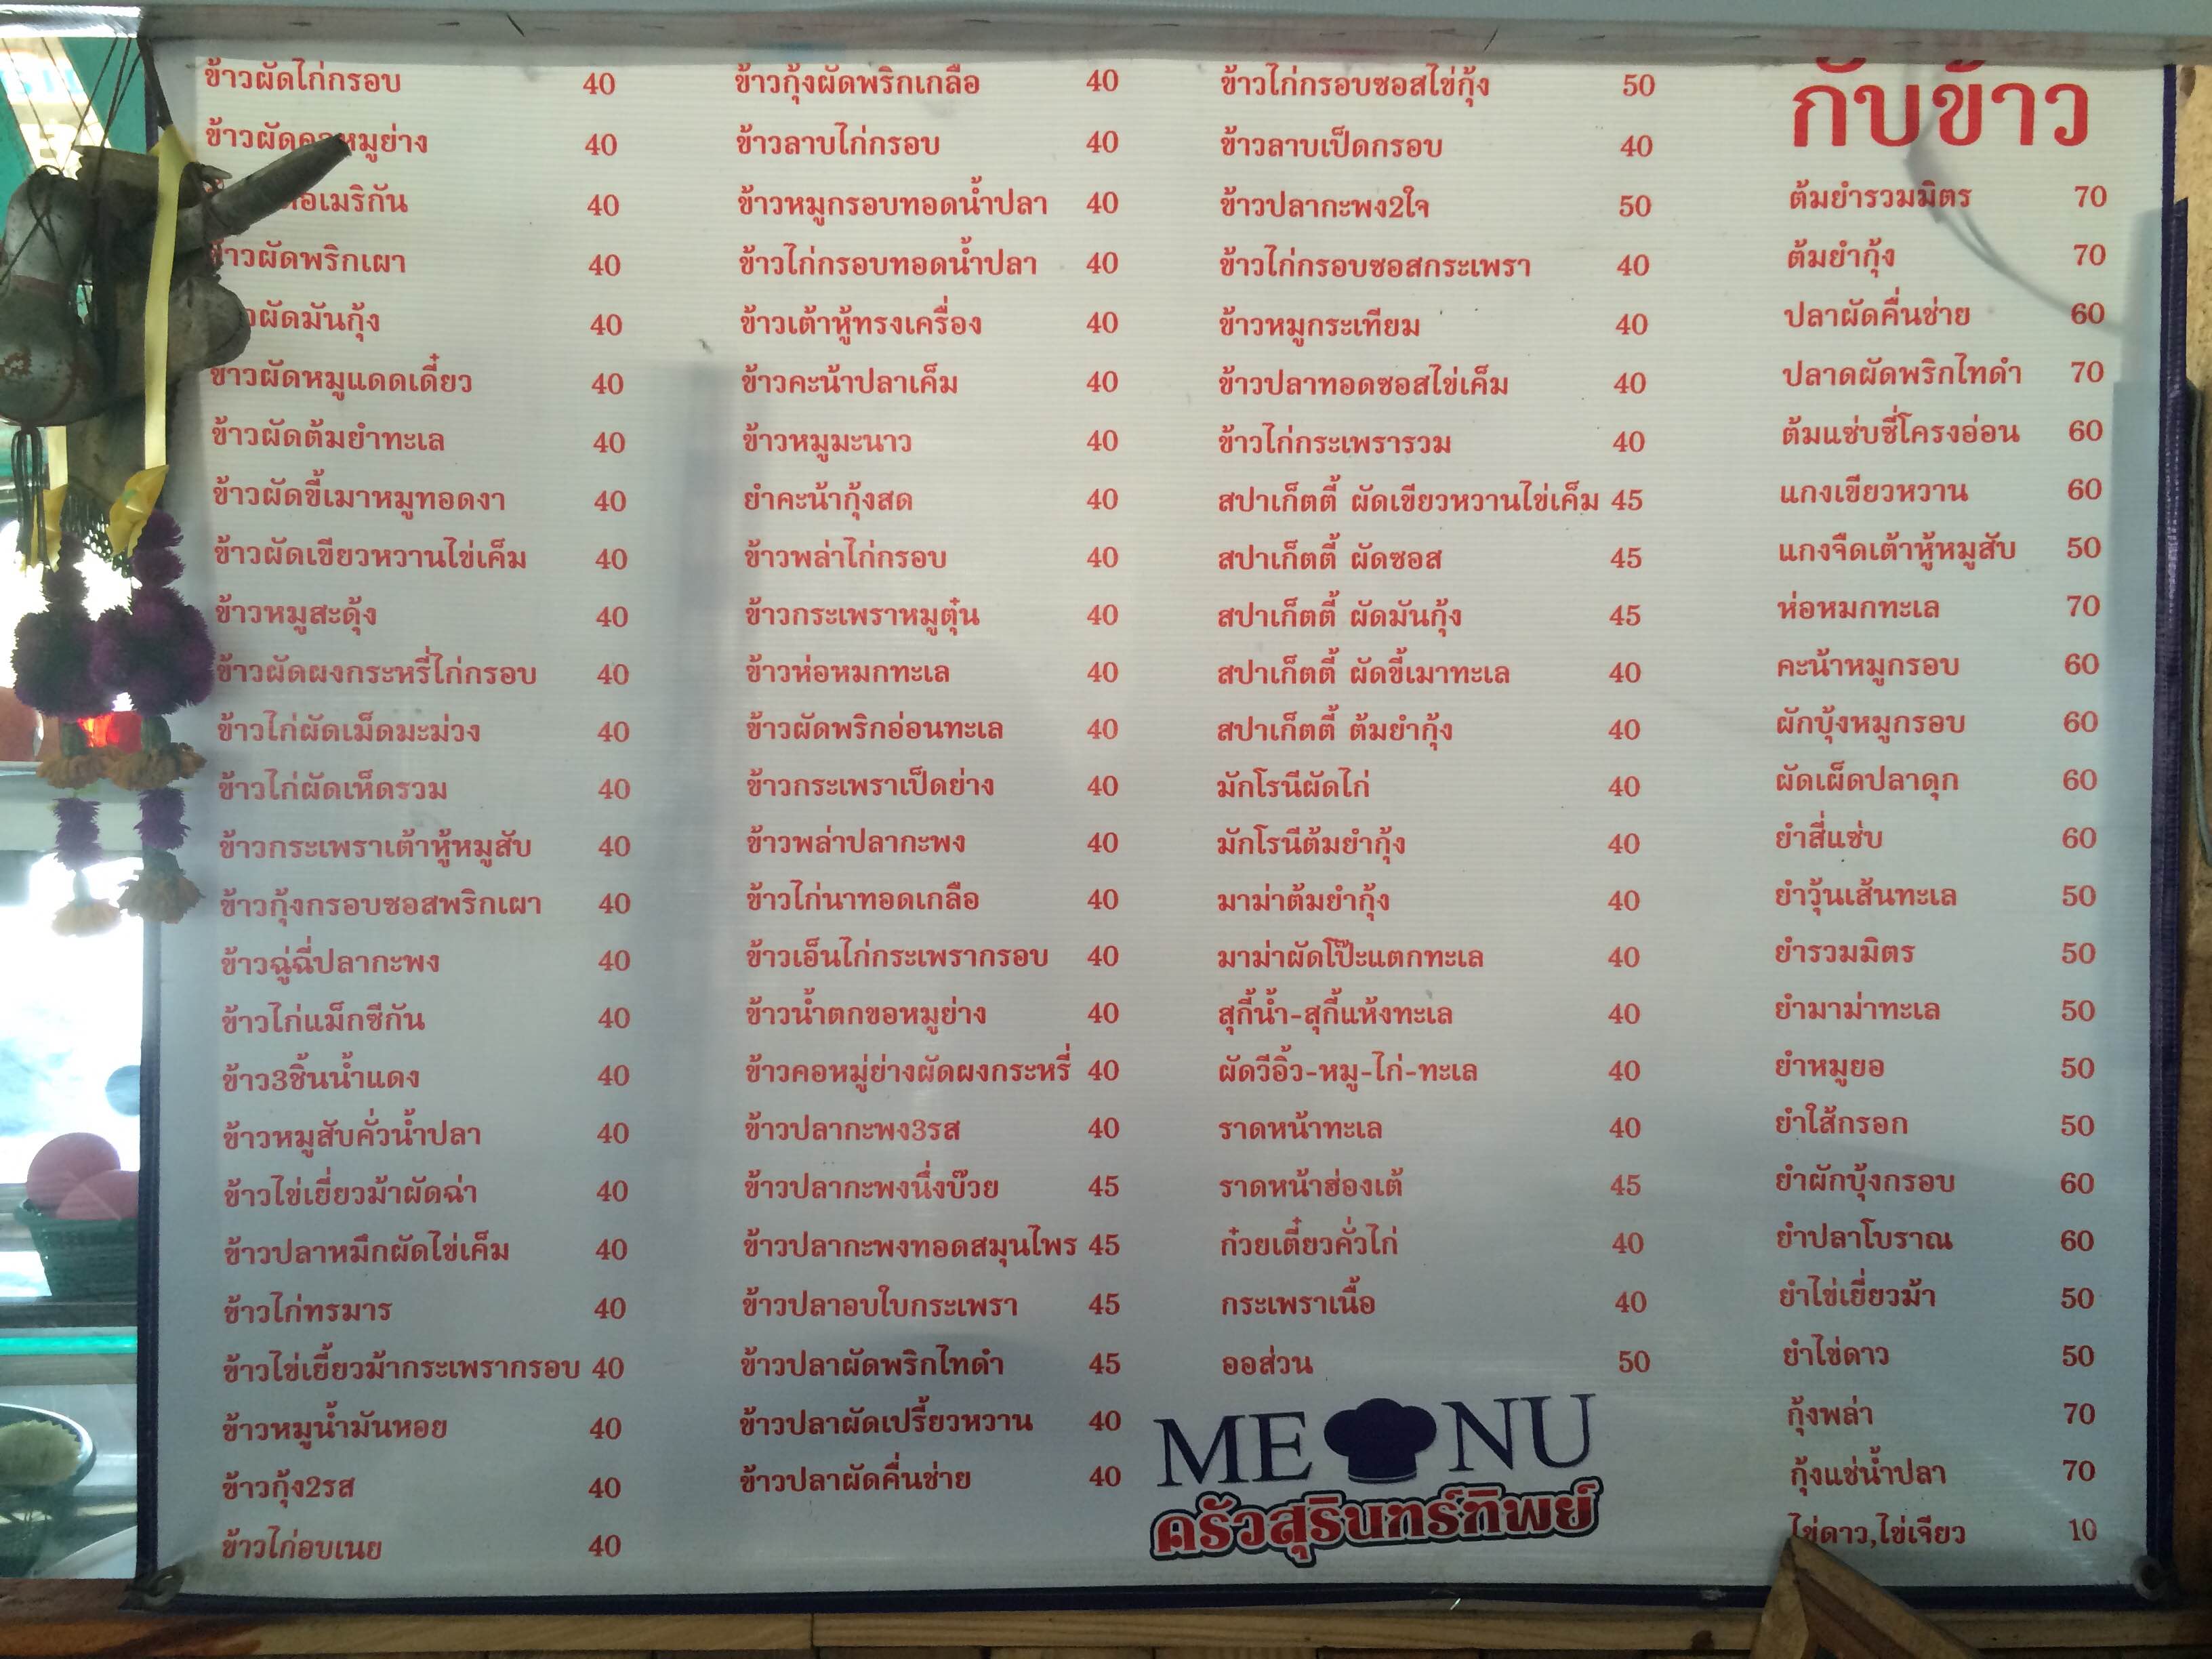 ข้าวผัดไก่กรอบ 40
ข้าวผัดคอหมูย่าง 40
อเมริกัน 40
ข้าวผัดพริกเผา 40
ผัดมันกุ้ง 40
ข้าวผัดหมูแดดเดี๋ยว 40
ข้าวผัดต้มยำทะเล 40
ข้าวผัดขี้เมาหมูทอดงา 40
ข้าวผัดเขียวหวานไข่เค็ม 40
ข้าวหมูสะดุ้ง 40
ข้าวผัดผงกระหรี่ไก่กรอบ 40
ข้าวไก่ผัดเม็ดมะม่วง 40
ข้าวไก่ผัดเห็ดรวม 40
ข้าวกระเพราเต้าหู้หมูสับ 40
ข้าวกุ้งกรอบซอสพริกเผา 40
ข้าวฉู่ฉี่ปลากะพง 40
ข้าวไก่แม็กซีกัน 40
ข้าว3ชิ้นน้ำแดง 40
ข้าวหมูสับคั่วน้ำปลา 40
ข้าวไข่เยี่ยวม้าผัดฉ่า 40
ข้าวปลาหมึกผัดไข่เค็ม 40
ข้าวไก่ทรมาร 40
ข้าวไข่เยี้ยวม้ากระเพรากรอบ 40
ข้าวหมูน้ำมันหอย 40
ข้าวกุ้ง2รส 40
ข้าวไก่อบเนย 40
ข้าวกุ้งผัดพริกเกลือ 40
ข้าวลาบไก่กรอบ 40
ข้าวหมูกรอบทอดน้ำปลา 40
ข้าวไก่กรอบทอดน้ำปลา 40
ข้าวเต้าหู้ทรงเครื่อง 40
ข้าวคะน้าปลาเค็ม 40
ข้าวหมูมะนาว 40
ยำคะน้ากุ้งสด 40
ข้าวพล่าไก่กรอบ 40
ข้าวกระเพราหมูตุ๋น 40
ข้าวห่อหมกทะเล 40
ข้าวผัดพริกอ่อนทะเล 40
ข้าวกระเพราเป็ดย่าง 40
ข้าวพล่าปลากะพง 40
ข้าวไก่นาทอดเกลือ 40
ข้าวเอ็นไก่กระเพรากรอบ 40
ข้าวน้ำตกขอหมูย่าง 40
ข้าวคอหมู่ย่างผัดผงกระหรี่ 40
ข้าวปลากะพง3รส 40
ข้าวปลากะพงนึ่งบ๊วย 45
ข้าวปลากะพงทอดสมุนไพร 45
ข้าวปลาอบใบกระเพรา 45
ข้าวปลาผัดพริกไทดำ 45
ข้าวปลาผัดเปรี้ยวหวาน 40
ข้าวปลาผัดคื่นช่าย 40
ข้าวไก่กรอบซอสไข่กุ้ง 50
ข้าวลาบเป็ดกรอบ 40
ข้าวปลากะพง2ใจ 50
ข้าวไก่กรอบซอสกระเพรา 40
ข้าวหมูกระเทียม 40
ข้าวปลาทอดซอสไข่เค็ม 40
ข้าวไก่กระเพรารวม 40
สปาเก็ตตี้ ผัดเขียวหวานไข่เค็ม 45
สปาเก็ตตี้ ผัดซอส 45
สปาเก็ตตี้ ผัดมันกุ้ง 45
สปาเก็ตตี้ ผัดขี้เมาทะเล 40
สปาเก็ตตี้ ต้มยำกุ้ง 40
มักโรนีผัดไก่ 40
มักโรนีต้มยำกุ้ง 40
มาม่าต้มยำกุ้ง 40
มาม่าผัดโป๊ะแตกทะเล 40
สุกี้น้ำ-สุกี้แห้งทะเล 40
ผัดวีอิ้ว-หมู-ไก่-ทะเล 40
ราดหน้าทะเล 40
ราดหน้าฮ่องเต้ 45
ก๋วยเตี๋ยวคั่วไก่ 40
กระเพราเนื้อ 40
ออส่วน 50
MENU
ครัวสุรินทร์ทิพย์
กับข้าว
ต้มยำรวมมิตร 70
ต้มยำกุ้ง 70
ปลาผัดคื่นช่าย 60
ปลาดผัดพริกไทดำ 70
ต้มแซ่บซี่โครงอ่อน 60
แกงเขียวหวาน 60
แกงจืดเต้าหู้หมูสับ 50
ห่อหมกทะเล 70
คะน้าหมูกรอบ 60
ผักบุ้งหมูกรอบ 60
ผัดเผ็ดปลาดุก 60
ยำสี่แซ่บ 60
ยำวุ้นเส้นทะเล 50
ยำรวมมิตร 50
ยำมาม่าทะเล 50
ยำหมูยอ 50
ยำใส้กรอก 50
ยำผักบุ้งกรอบ 60
ยำปลาโบราณ 60
ยำไข่เยี่ยวม้า 50
ยำไข่ดาว 50
กุ้งพล่า 70
กุ้งแช่น้ำปลา 70
ไข่ดาว,ไข่เจียว 10